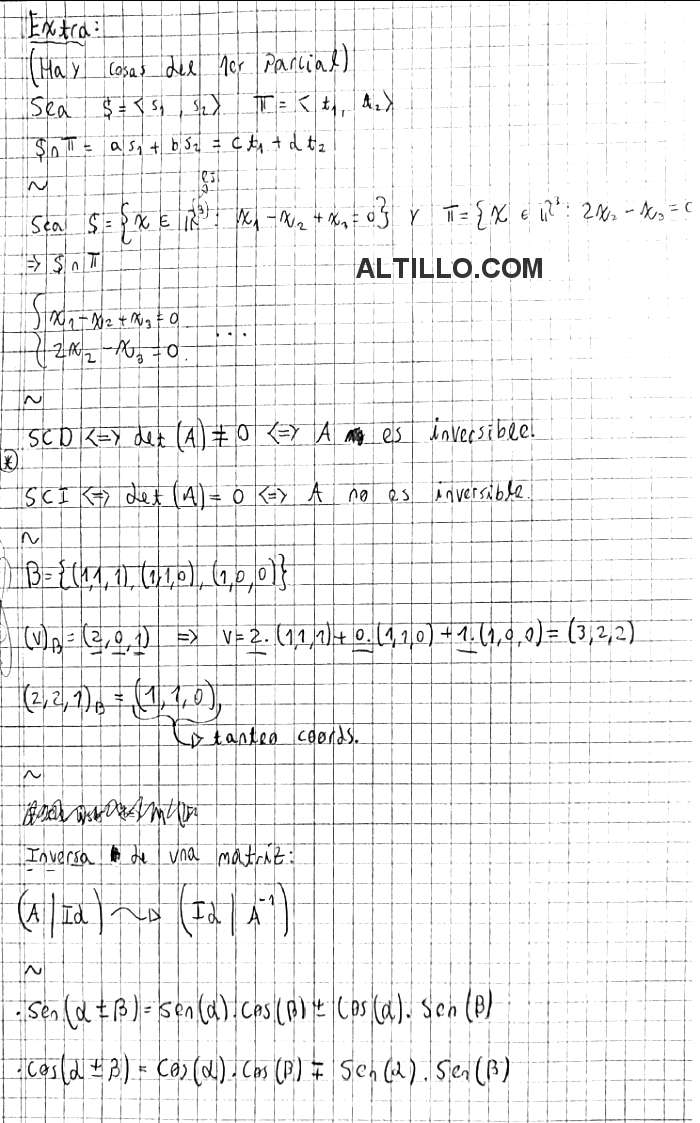 Extra:
(Hay cosas del 1er Parcial)
Sea $ = <s₁, s₂> π = <t₁, t₂>
$∩π = as₁ + bs₂ = ct₁ + dt₂
~
Sea $ = {x ∈ ℝ³ : x₁ - x₂ + x₃ = 0} y π = {x ∈ ℝ³ : 2x₂ - x₃ = 0
=> $∩π
ALTILLO.COM
{ x₁ - x₂ + x₃ = 0
{ 2x₂ - x₃ = 0. ...
~
SCD <=> det(A) ≠ 0 <=> A es inversible.
(*)
SCI <=> det(A) = 0 <=> A no es inversible
~
B = {(1,1,1), (1,1,0), (1,0,0)}
(v)B = (2,0,1) => v = 2.(1,1,1) + 0.(1,1,0) + 1.(1,0,0) = (3,2,2)
(2,2,1)B = (1,1,0),
tanteo coords.
~
Inversa de una matriz:
(A | Id) ⤳ (Id | A⁻¹)
~
. Sen(α ± β) = Sen(α).Cos(β) ± Cos(α).Sen(β)
. Cos(α ± β) = Cos(α).Cos(β) ∓ Sen(α).Sen(β)